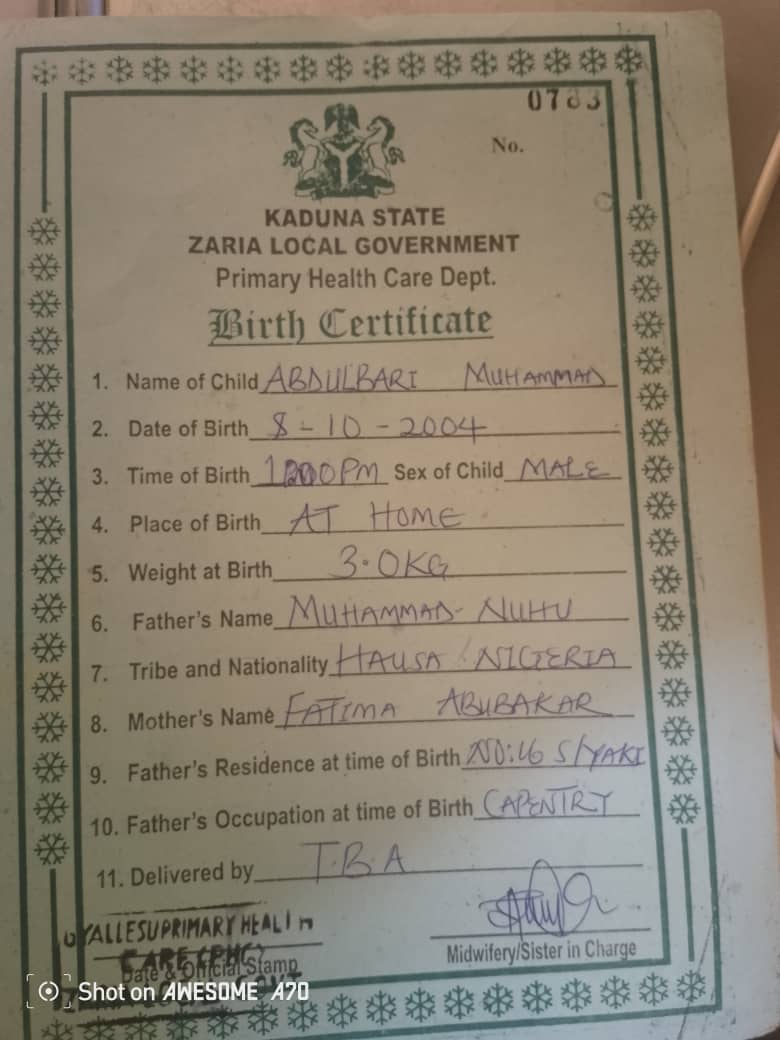 No.
KADUNA STATE
ZARIA LOCAL GOVERNMENT
Primary Health Care Dept.
Birth Certificate
1. Name of Child ABDULBARI MUHAMMAD
2. Date of Birth 8-10-2004
3. Time of Birth Sex of Child MALE
4. Place of Birth AT HOME
5. Weight at Birth 3.0KG
6. Father's Name MUHAMMAD NUHU
7. Tribe and Nationality HAUSA NIGERIA
8. Mother's Name FATIMA ABUBAKAR
9. Father's Residence at time of Birth S/YAKI
10. Father's Occupation at time of Birth CAPENTRY
11. Delivered by T.B.A
PRIMARY HEALTH
CARE (PHC)
Date & Official Stamp
Midwifery/Sister in Charge
Shot on AWESOME A70